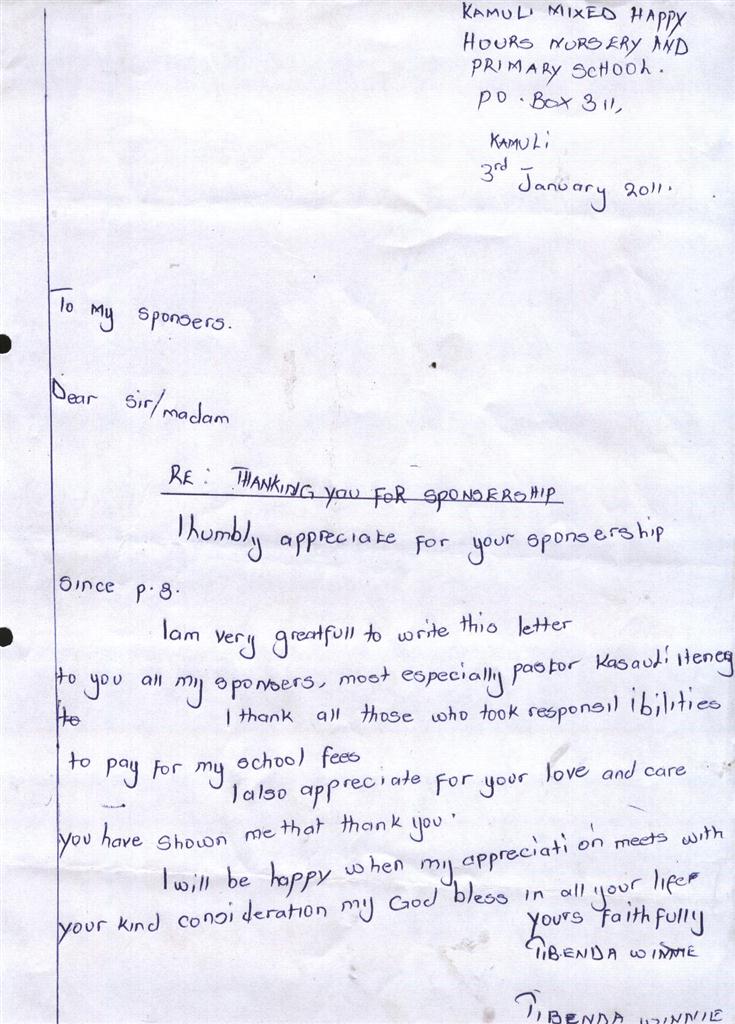 KAMULI MIXED HAPPY
HOURS NURSERY AND
PRIMARY SCHOOL.
PO. BOX 311,
KAMULI
3rd January 2011.
To My sponsers.
Dear sir/madam
RE: THANKING YOU FOR SPONSERSHIP
I humbly appreciate for your sponsership
since p.3.
Iam very greatfull to write this letter
to you all my sponsers, most especially pastor Kasauli
to I thank all those who took responsil ibilities
to pay for my school fees
I also appreciate for your love and care
you have shown me that thank you.
I will be happy when my appreciation meets with
your kind consideration my God bless in all your life
yours faithfully
TIBENDA WINNIE
TIBENDA WINNIE